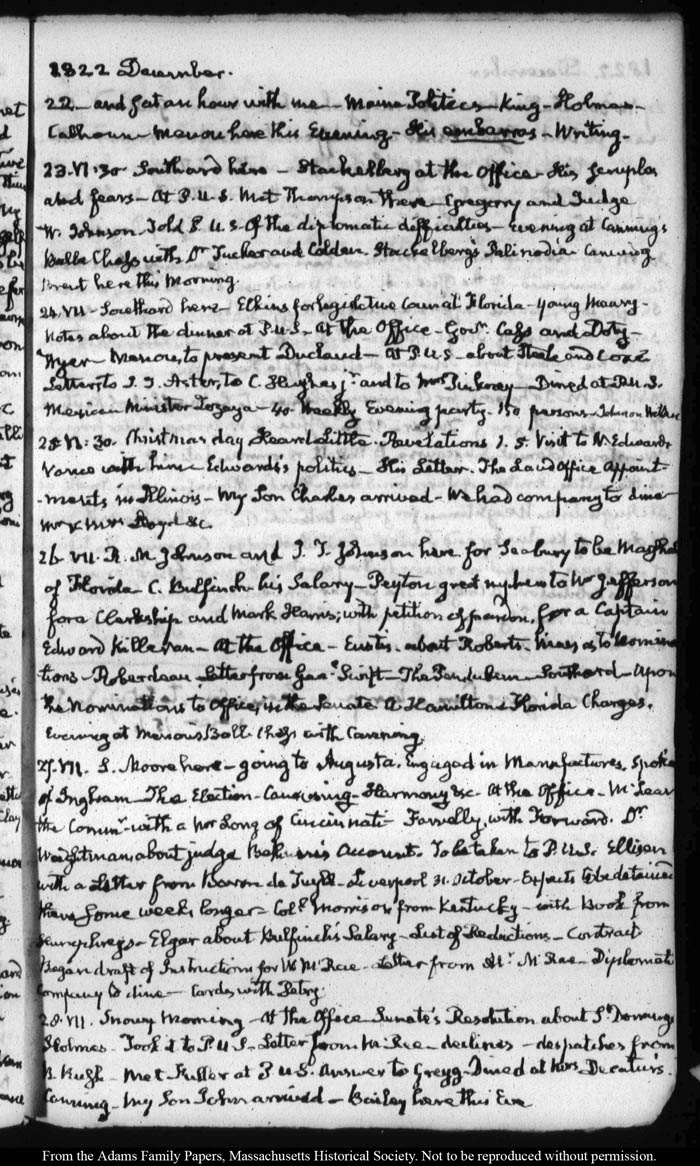 1822 December.
22 - and sat an hour with me - Maine Politics - King - Holmes -
Calhoun - Menou here this Evening - His embarras - Writing -
23. VI:30 Southard here - Stackelberg at the Office - His scruples
and fears - At P.U.S. Met Thompson there - Gregory and Judge
W. Johnson. Told P.U.S. of the diplomatic difficulties - Evening at Canning's
Ball. Chess with Dr Tucker and Colden. Stackelberg's Palinodia. Canning
Brent here this Morning.
24. VII - Southard here - Elkins for Legislative Council Florida - Young Maury -
Notes about the dinner at P.U.S. - At the Office - Govr. Cass and Doty -
Wyer - Menou, to present Duclaud - At P.U.S. about Steele and
Letters to J. J. Astor, to C. Hughes jr. and to Mrs Pinkney - Dined at P.U.S.
Mexican Minister Zozaya - 40 - Weekly Evening party - 150 persons - Johnson
25. VI:30. Christmas day Heard Little. Revelations 1. 5. Visit to N. Edwards
with him - Edwards's politics - His Letter. The Land Office Appoint-
-ments in Illinois - My Son Charles arrived - We had company to dine -
Mr & Mrs Boyd &c.
26. VII. R. M. Johnson and J. T. Johnson here for Seabury to be Marshal
of Florida - C. Bulfinch his Salary - Peyton great nephew to Mr Jefferson
for a Clerkship and Mark Harris; with petition of pardon, for a Captain
Edward Killeran - At the Office - Eustis about Roberts. as to Nomina
tions - Roberdeau - Letter from Genl. Swift - The Pendulum - Southard - Upon
the Nominations to Office, in the Senate A. Hamilton's Florida Charges.
Evening at Menou's Ball. Chess with Canning.
27. VII. S. Moore here - going to Augusta. Engaged in Manufactures. Spoke
of Ingham - The Election - Caucusing - Harmony &c - At the Office - McLean
the Commr. with a Mr Long of Cincinnati - Farrelly, with Forward. Dr.
Weightman about judge Account. To be taken to P.U.S. Ellison
with a Letter from Baron de Tuyll - Liverpool 31. October - Expects to be detained
there some weeks longer - Coll. Morrison from Kentucky - with Book from
Humphreys - Elgar about Bulfinch's Salary - List of Reductions - Contract
Began draft of Instructions for W. McRae. Letter from Mr. McRae - Diplomatic
Company to dine - Cards with Petry.
28. VII. Snowy Morning - At the Office Senate's Resolution about St. Domingo
Holmes. Took it to P.U.S. - Letter from McRae - declines - despatches from
B. Rush - Met Fuller at P.U.S. Answer to Gregg - Dined at Mrs. Decatur's.
Canning - My Son John arrived - Bailey here this Eve
From the Adams Family Papers, Massachusetts Historical Society. Not to be reproduced without permission.